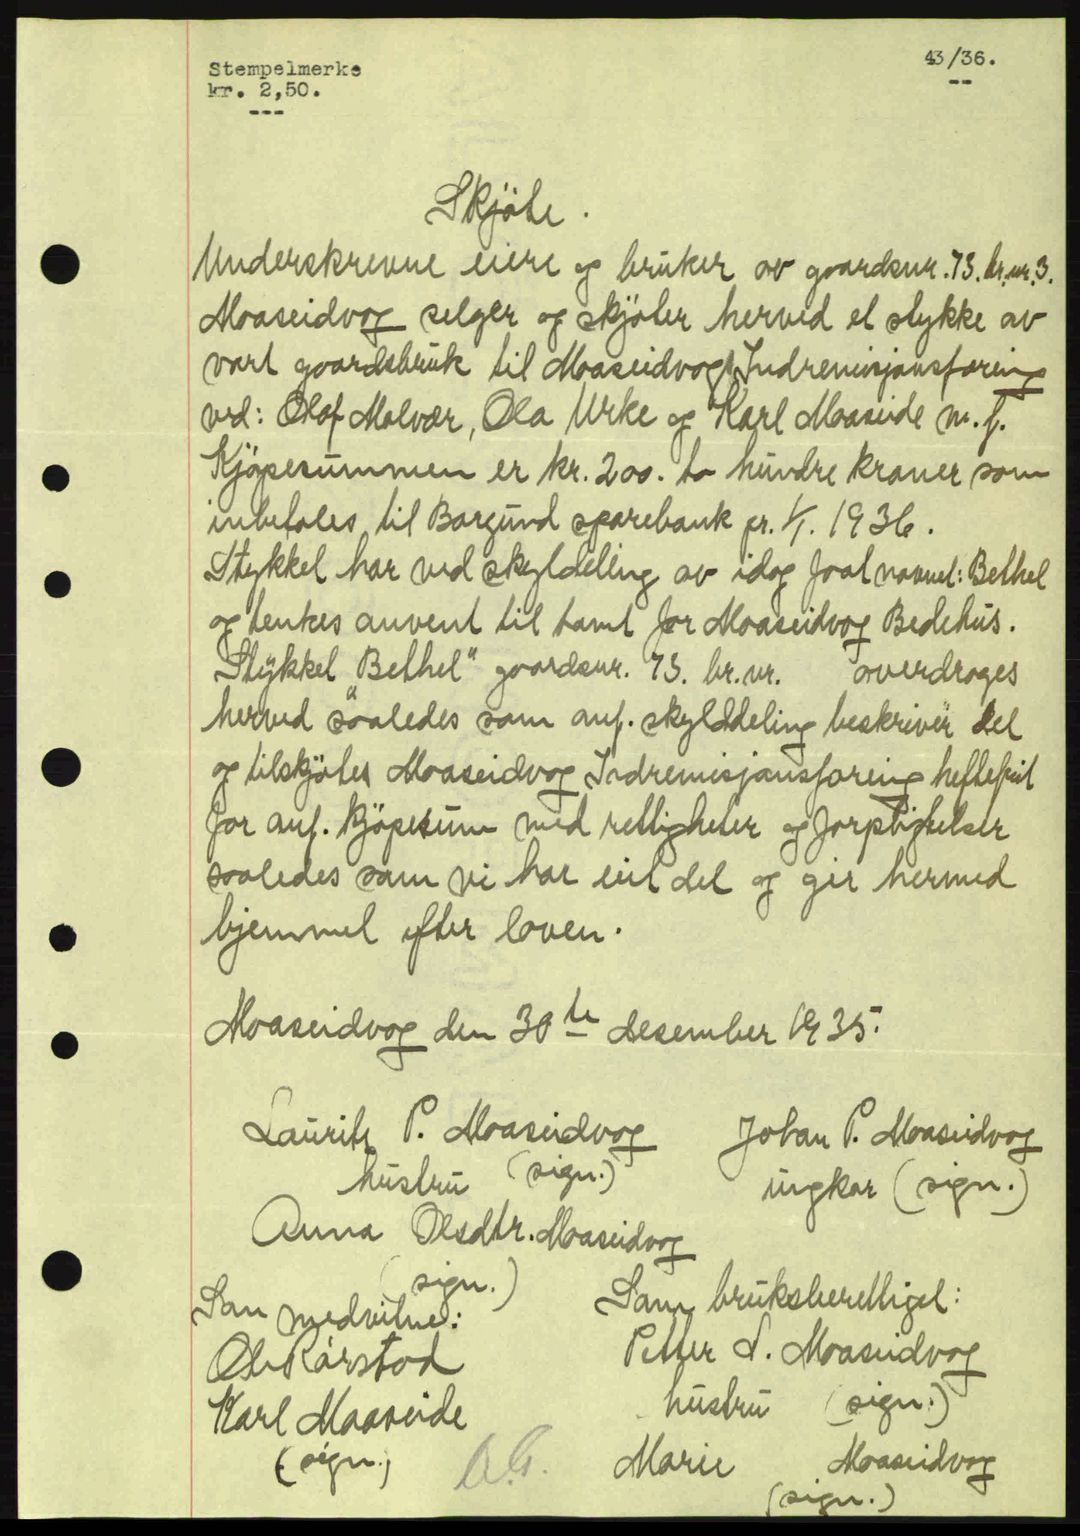 Stempelmerke
kr. 2,50.
---
43/36.
--
Skjöte.
Underskrevne eiere og bruker av gaardsnr. 73. br.nr. 3.
Moaseidvog selger og skjöter herved et stykke av
vart gaardsbruk til Moaseidvog Indremisjonsforening
ved: Olaf Molvær, Ola Urke og Karl Moaseide m. f.
Kjöpesummen er kr. 200. to hundre kroner som
inbetales til Borgund sparebank pr. 1/1. 1936.
Stykket har ved skylddeling av idag faat navnet: Bethel
og tenkes anvent til tomt for Moaseidvog Bedehus.
Stykket "Bethel" gaardsnr. 73. br.nr. overdrages
herved saaledes som anf. skylddeling beskriver det
og tilskjötes Moaseidvog Indremisjonsforening heftefrit
for anf. kjöpesum med rettigheter og forpligtelser
saaledes som vi har eiet det og gir hermed
hjemmel efter loven.
Moaseidvog den 30te desember 1935.
Laurits P. Moaseidvog
(sign.)
Johan P. Moaseidvog
ungkar (sign.)
hustru
Anna Olsdtr. Moaseidvog
(sign.)
Som medvitne:
Ole Rørstad
Karl Moaseide
(sign.)
Som bruksberettiget:
Petter L. Moaseidvog
(sign.)
hustru
Marie Moaseidvog
(sign.)